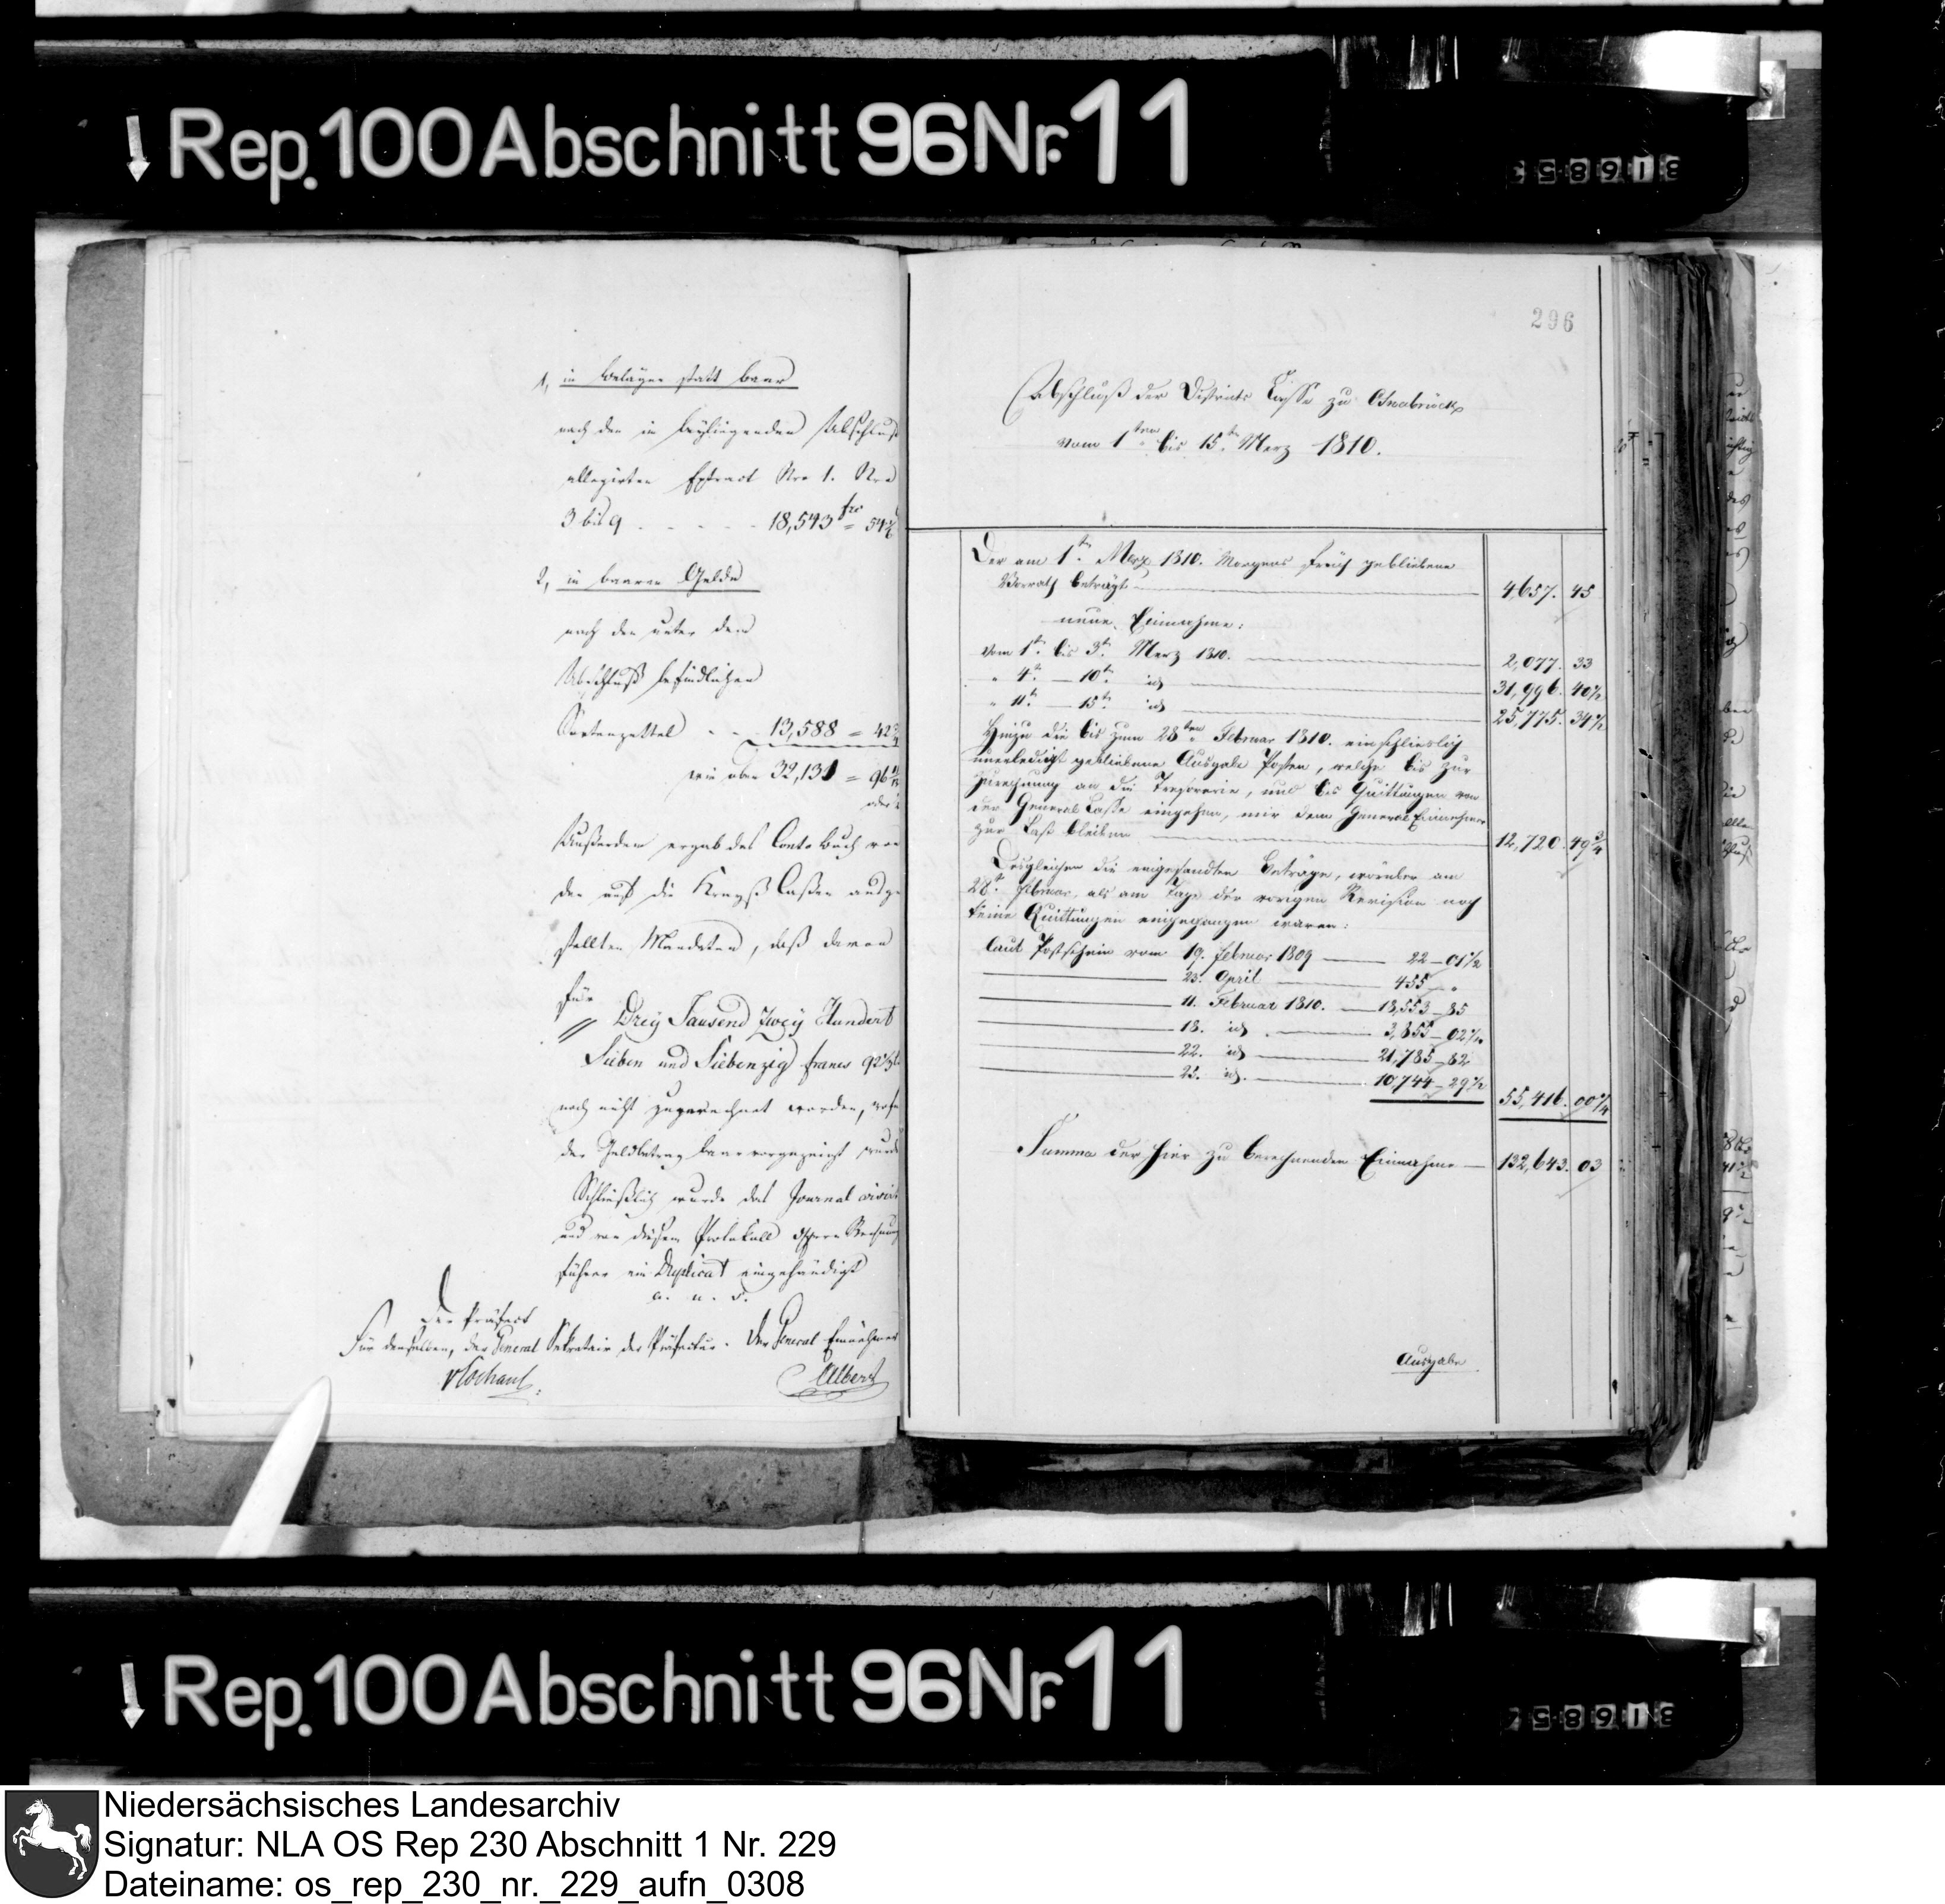 Rep. 100 Abschnitt 96 Nr. 11
1, in Beläger statt baar
nach den in beyliegenden Abschluß
allegirten Extract Nro 1. Nro
3 bis 9 . . . . . 18,543 frc = 54
2, in baaren Gelde
nach den unter dem
Abschluß befindlichen
Sortenzettel - - - 13,588 = 42
wie oben 32,131 = 96
Außerdem ergab das Conto Buch von
den auf die Kreyß Cassen ausge
stellten Mandaten, daß davon
für
Drey Tausend Zwey Hundert
Sieben und Siebenzig francs 92
noch nicht zugerechnet worden,
der Geldbetrag baar vorgezeigt wurde
Schließlich wurde das Journal
und von diesem Protokoll Rechnungs
führer ein Duplicat eingehändigt
a. u. s.
Der Präfect
Für denselben, der General Sekretair der Präfectur. Der General Einnehmer
Albers
296
Abschluß der Districts Casse zu Osnabrück
vom 1ten bis 15ten Merz 1810.
Der am 1ten Merz 1810. Morgens früh gebliebene
Vorrath beträgt 4,657. 45
neue Einnahme:
vom 1ten bis 3ten Merz 1810. 2,077. 33
" 4ten — 10ten id 31,996. 40 1/2
" 11ten — 15ten id 25,775. 34 1/2
Hinzu die bis zum 28ten Februar 1810. einschlieslich
unerledigt gebliebene Ausgabe Posten, welche bis zur
Zurechnung an die Tresorerie, und bis Quittungen von
der General Casse eingehen, mir dem General Einnehmer
zur Last bleiben 12,720. 49 3/4
Desgleichen die eingesandten Beträge, worüber am
28ten Februar, als am Tage der vorigen Revision noch
keine Quittungen eingegangen waren:
laut Postschein vom 19. Februar 1809 — 22 — 01 1/2
23. April 455 — "
11. Februar 1810. — 18,553 — 85
18. id. 3,855 — 02 1/2
22. id 21,785 — 82
25. id. 10,744 — 29 1/2
55,416. 00 1/4
Summa der hier zu berechnenden Einnahme — 132,643. 03
Ausgabe
Rep. 100 Abschnitt 96 Nr. 11
Niedersächsisches Landesarchiv
Signatur: NLA OS Rep 230 Abschnitt 1 Nr. 229
Dateiname: os_rep_230_nr._229_aufn_0308